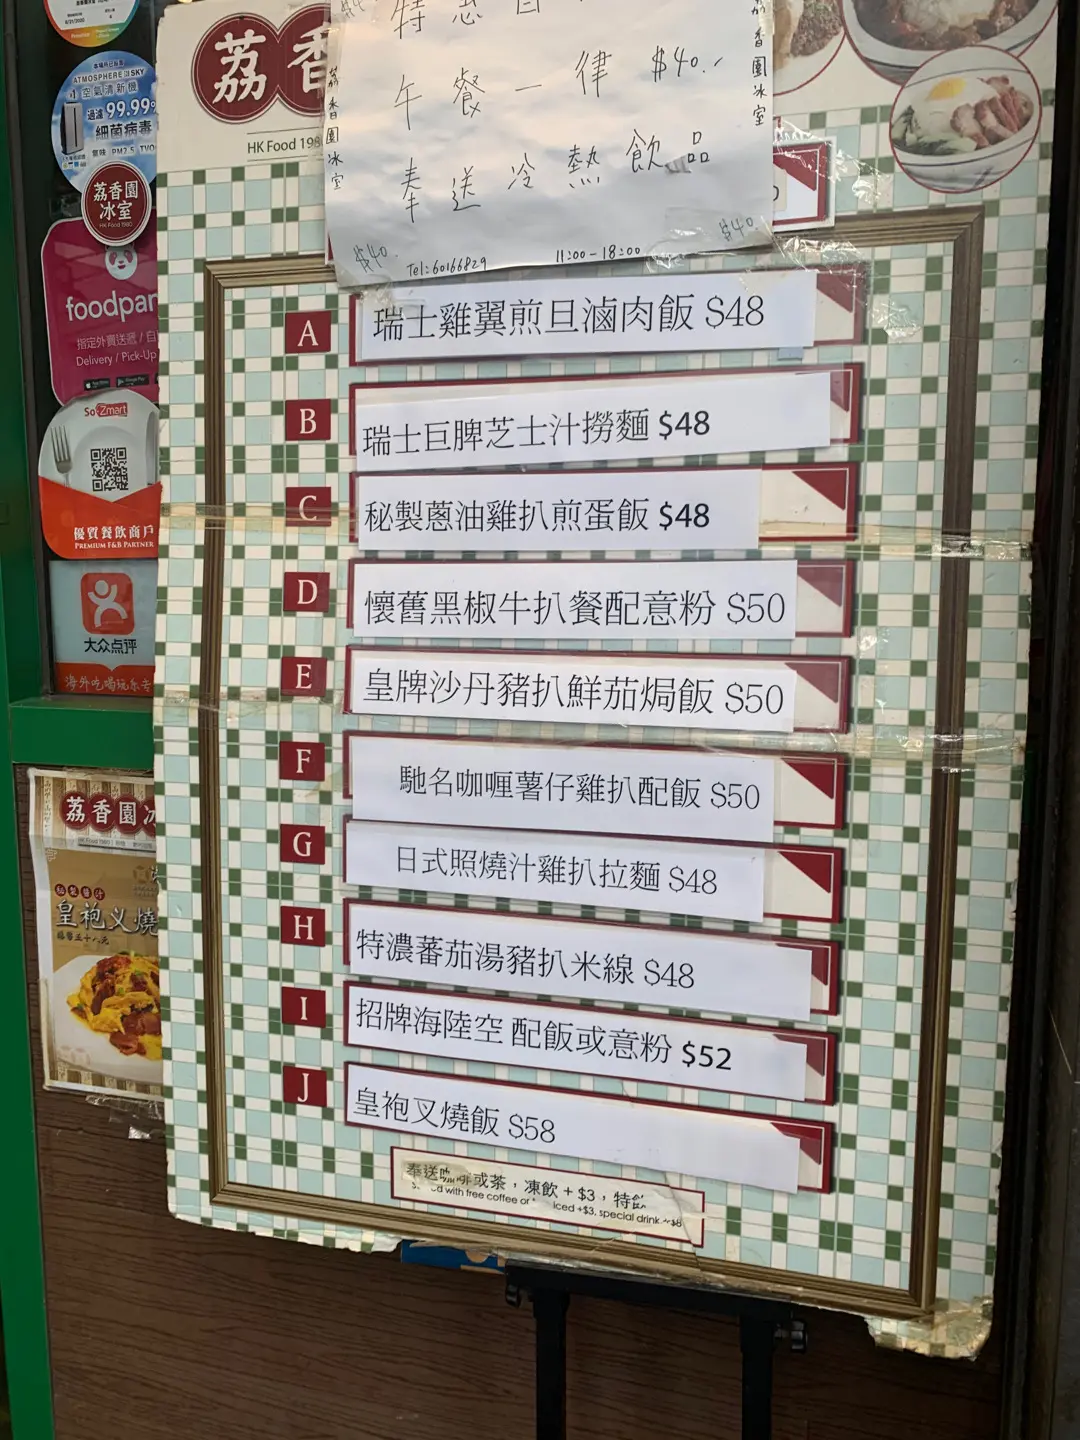 荔香
HK Food 198
午餐一律 $40.-
奉送冷熱飲品
荔香園冰室
香園冰室
$40.
$40.
Tel:60166829
11:00-18:00
A 瑞士雞翼煎旦滷肉飯 $48
B 瑞士巨脾芝士汁撈麵 $48
C 秘製蔥油雞扒煎蛋飯 $48
D 懷舊黑椒牛扒餐配意粉 $50
E 皇牌沙丹豬扒鮮茄焗飯 $50
F 馳名咖喱薯仔雞扒配飯 $50
G 日式照燒汁雞扒拉麵 $48
H 特濃蕃茄湯豬扒米線 $48
I 招牌海陸空 配飯或意粉 $52
J 皇袍叉燒飯 $58
奉送咖啡或茶，凍飲 + $3，特飲
d with free coffee or
iced +$3, special drink
ATMOSPHERE SKY
空氣清新機
過濾 99.99%
細菌病毒
PM2.5
荔香園
冰室
HK Food 1980
foodpan
指定外賣速遞 / 自
Delivery / Pick-Up
So Zmart
優質餐飲商戶
PREMIUM F&B PARTNER
大众点评
海外吃喝玩乐
荔香園冰
皇袍叉燒